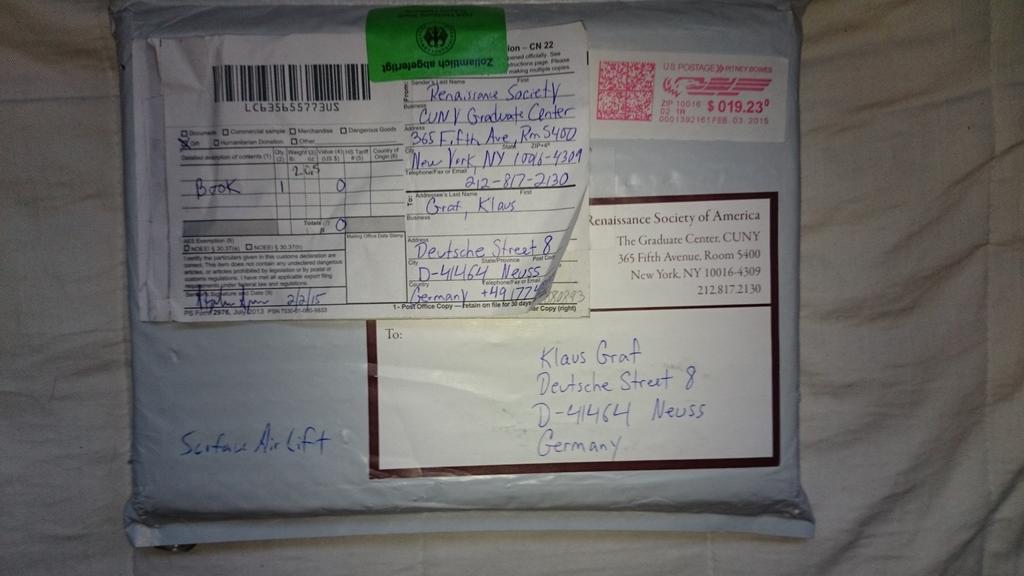 Zollamtlich abgefertigt
ion – CN 22
pened officially. See
structions page. Please
making multiple copies.
LC635655773US
Document Commercial sample Merchandise Dangerous Goods
Gift Humanitarian Donation Other
Detailed description of contents (1) Qty (2) Weight (3) lb. oz. Value (4) (US $) HS Tariff # (5) Country of Origin (6)
Book 1 0
Totals 0
AES Exemption (9)
NOEEI § 30.37(a) NOEEI § 30.37(h)
Mailing Office Date Stamp
I certify the particulars given in this customs declaration are
correct. This item does not contain any undeclared dangerous
articles, or articles prohibited by legislation or by postal or
customs regulations. I have met all applicable export filing
2/2/15
PS Form 2976, July 2013
1 - Post Office Copy — retain on file for 30 days
er Copy (right)
From: Sender's Last Name First
Renaissance Society
Business
CUNY Graduate Center
Address
365 Fifth Ave, Rm 5400
City State ZIP+4
New York, NY 10016-4309
Telephone/Fax or Email
212-817-2130
To: Addressee's Last Name First
Graf, Klaus
Business
Address
Deutsche Street 8
City State/Province
D-41464 Neuss
Country Telephone/Fax or Email
Germany +49 177
U.S. POSTAGE PITNEY BOWES
ZIP 10016 $ 019.23⁰
0001392161 FEB. 03. 2015
Renaissance Society of America
The Graduate Center, CUNY
365 Fifth Avenue, Room 5400
New York, NY 10016-4309
212.817.2130
To:
Klaus Graf
Deutsche Street 8
D-41464 Neuss
Germany
Surface Air Lift